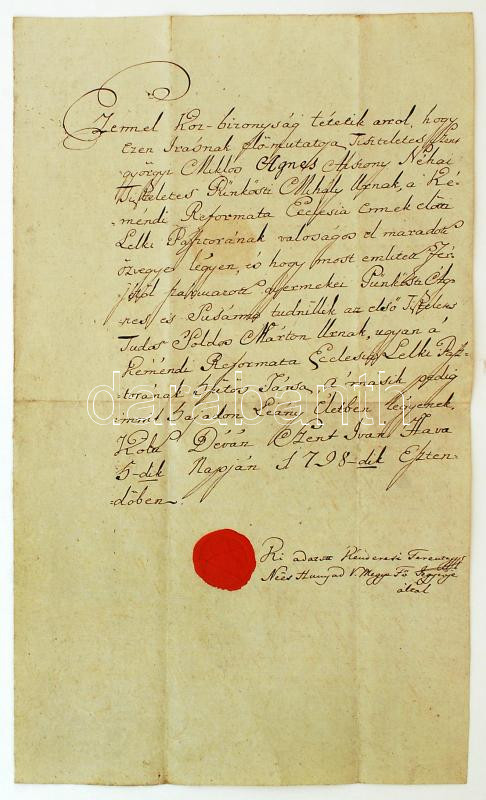 Ezennel Köz-bizonyság tétetik arrol, hogy
ezen Irásnak elö-mutatoja Tiszteletes Szent
györgyi Miklos Agnes Aszszony Néhai
Tiszteletes Pünkösti Mihály Urnak, a Ké-
méndi Reformata Ecclesia ennek elötti
Lelki Pásztorának valoságos el maradott
özvegye légyen, és hogy most emlitett Fér-
jétöl származott gyermekei Pünkösti Ag-
nes és Susánna tudniillik az elsö Tiszteletes
Tudos Soldos Márton Urnak, ugyan a
Kéméndi Reformata Ecclesia Lelki Pász-
torának Hütös Társa, a másik pedig
mint hajadon Leány Életben légyenek.
Költ Déván Szent Iván Hava
5-dik Napján 1798-dik Eszten-
döben.
Ki adatott Kenderesi Ferencz
Nees Hunyad V. Megye Fö
által
darabanth